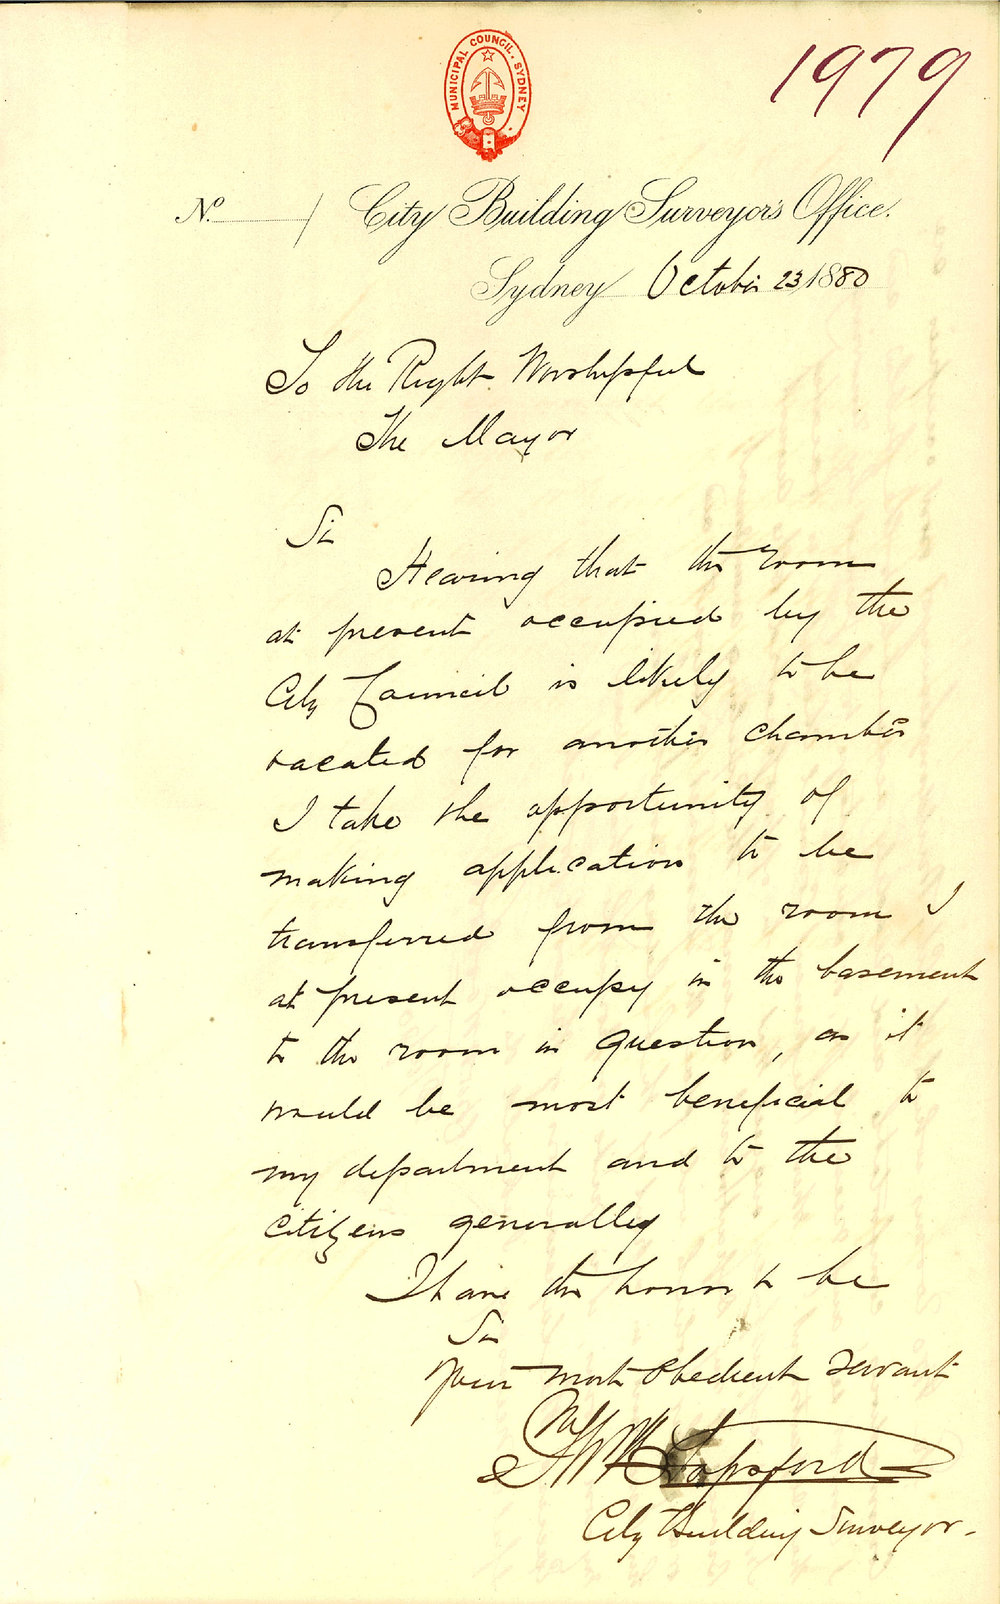 MUNICIPAL COUNCIL. SYDNEY
1979
No. / City Building Surveyor's Office.
Sydney October 23, 1880
To the Right Worshipful
The Mayor
Sir
Hearing that the room
at present occupied by the
City Council is likely to be
vacated for another chamber
I take the opportunity of
making application to be
transferred from the room I
at present occupy in the basement
to the room in question, as it
would be most beneficial to
my department and to the
citizens generally
I have the honor to be
Sir
Your most obedient servant
Stopford
City Building Surveyor.